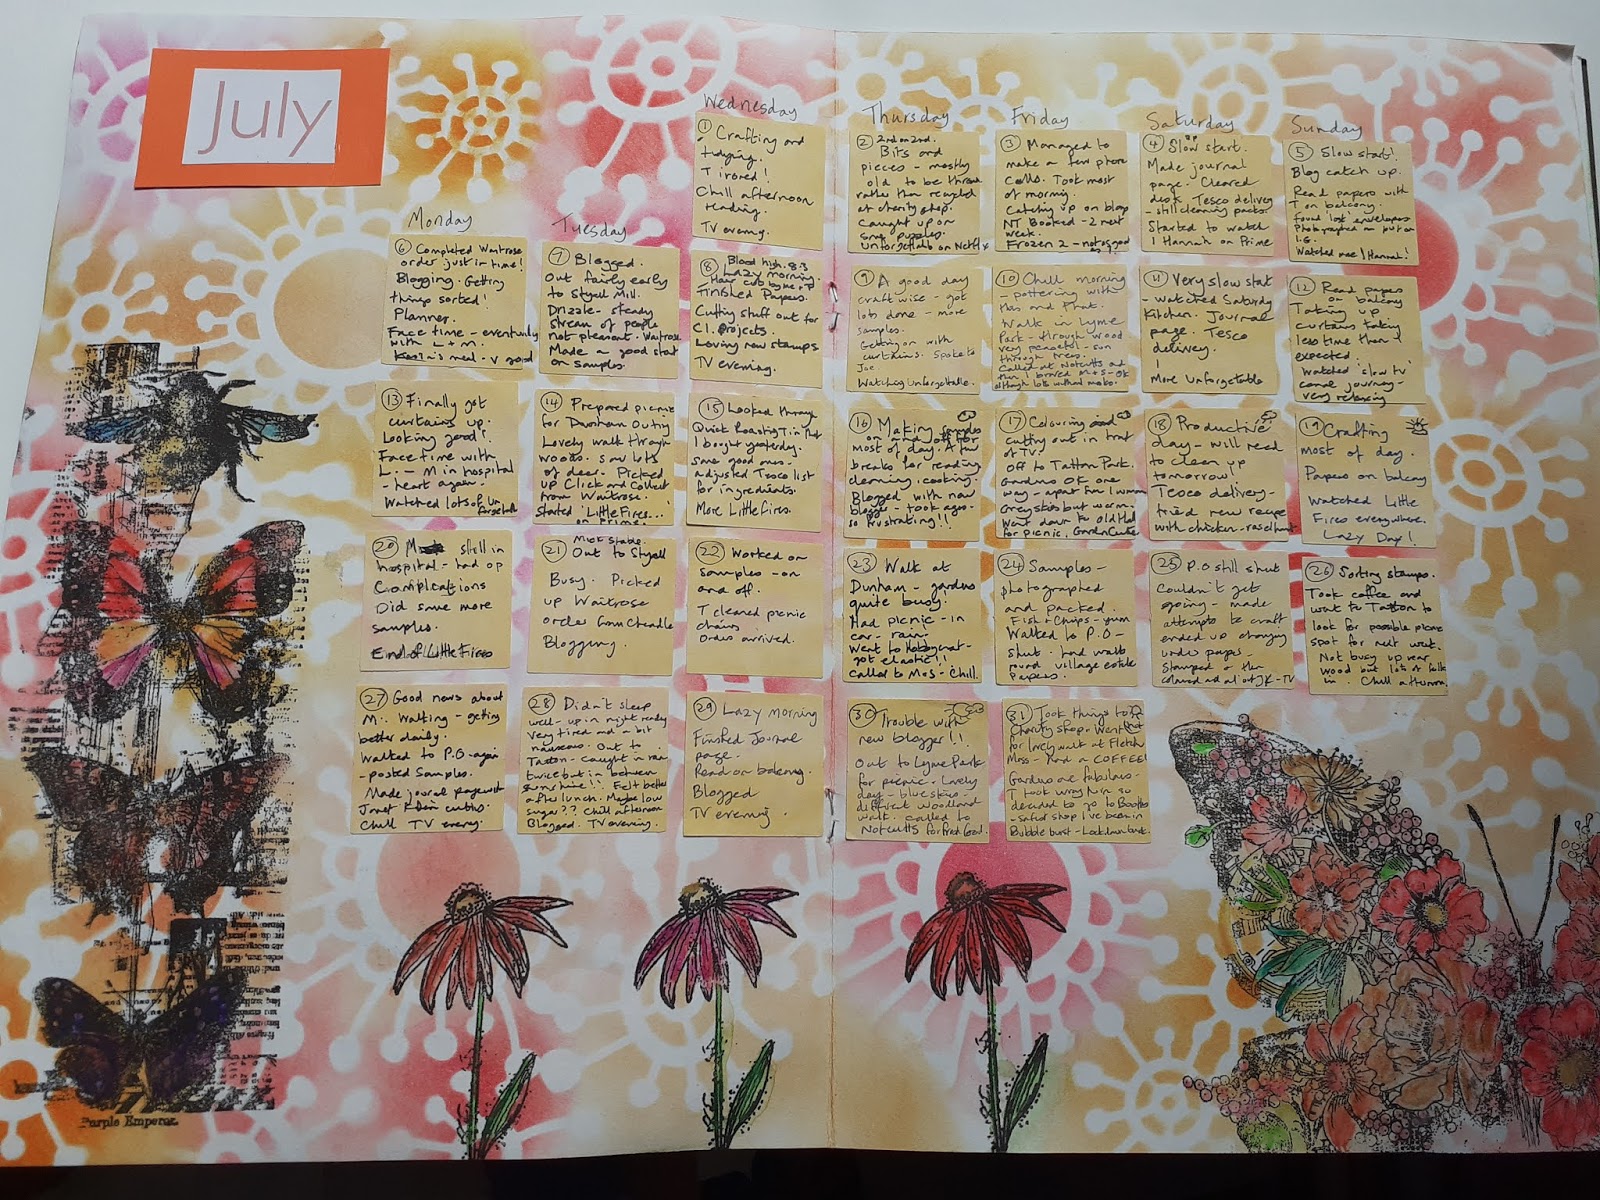 July
Wednesday
Thursday
Friday
Saturday
Sunday
Monday
Tuesday
1 Crafting and
tidying.
T ironed!
Chill afternoon
reading.
TV evening.
2 2nd on 2nd.
Bits and
pieces - mostly
old to be thrown
rather than recycled
at charity shop.
Caught up on
some puzzles.
Unforgettable on Netflix
3 Managed to
make a few phone
calls. Took most
of morning.
Catching up on blogs
NT Booked - 2 next
week.
Frozen 2 - not as good
4 Slow start.
Made journal
page. Cleared
desk. Tesco delivery
- still cleaning packs.
Started to watch
I Hannah on Prime
5 Slow start!
Blog catch up.
Read papers with
T on balcony.
found 'lost' envelopes
Photographed on put on
I.G.
Watched more Hannah!
6 Completed Waitrose
order just in time!
Blogging. Getting
things sorted!
Planner.
Face time - eventually
with L + M.
meal - v good
7 Blogged.
Out fairly early
to Styall Mill.
Drizzle - steady
stream of people
not pleasant. Waitrose
Made a good start
on samples.
8 Blood high. 8.3
Lazy morning.
- Hair cut by me
Finished Papers.
Cutting stuff out for
C.I. projects.
Loving new stamps
TV evening.
9 A good day
craftwise - got
lots done - more
samples.
Getting on with
curtains. Spoke to
Joe
Watching Unforgettable.
10 Chill morning
- pottering with
this and that.
Walk in Lyme
Park - through wood
very peaceful - sun
through trees.
Called at Notcutts and
then I braved M+S - OK
although lots without masks.
11 Very slow start
- watched Saturday
Kitchen. Journal
page. Tesco
delivery.
More Unforgettable
12 Read papers
on balcony
Taking up
curtains taking
less time than I
expected.
Watched 'slow tv'
canal journey -
very relaxing
13 Finally got
curtains up.
Looking good!
Face time with
L. - M in hospital
- heart again.
Watched lots of Un
forgettable
14 Prepared picnic
for Dunham Outing
Lovely walk through
woods. Saw lots
of deer. Picked
up Click and Collect
from Waitrose.
Started 'Little Fires...
on Prime.
15 Looked through
Quick Roasting Tin that
I bought yesterday.
Some good ones -
adjusted Tesco list
for ingredients.
More Little Fires.
16 Making samples
on and off for
most of day. A few
breaks for reading
cleaning, cooking.
Blogged with new
blogger - took ages -
so frustrating!!
17 Colouring and
cutting out in front
of TV.
Off to Tatton Park.
Gardens OK one
way - apart from 1 woman
Grey skies but warm.
Went down to old Hall
for picnic. Garden Centre
18 Productive
day - will need
to clean up
tomorrow!
Tesco delivery -
tried new recipe
with chicken -
19 Crafting
most of day.
Papers on balcony
Watched Little
Fires everywhere.
Lazy Day!
20 still in
hospital - had op
Complications
Did some more
samples.
End of Little Fires
21 Mick stable.
Out to Styall
Busy. Picked
up Waitrose
order from Cheadle
Blogging.
22 Worked on
samples - on
and off.
T cleaned picnic
chairs
Order arrived.
23 Walk at
Dunham - gardens
quite busy.
Had picnic - in
car - rain
Went to Hobbycraft -
got elastic!!
called to M+S - Chill.
24 Samples -
photographed
and packed.
Fish + Chips - yum
Walked to P.O -
shut. had walk
round village
Papers.
25 P.O still shut
Couldn't get
going - made
attempts to craft
ended up changing
Stamped
- TV
26 Sorting stamps.
Took coffee and
went to Tatton to
look for possible picnic
spot for next week.
Not busy up near
wood but lots of folk
in. Chill afternoon.
27 Good news about
M. Walking - getting
better daily.
Walked to P.O - again
- posted Samples.
Made journal page with
Janet Klein
Chill TV evening.
28 Didn't sleep
well - up in night really
very tired and a bit
nauseous. Out to
Tatton - caught in rain
twice but in between
sunshine!! Felt better
after lunch. Maybe low
sugar?? Chill afternoon
Blogged. TV evening.
29 Lazy morning
Finished Journal
page.
Read on balcony.
Blogged
TV evening.
30 Trouble with
new blogger!!
Out to Lyme Park
for picnic - lovely
day - blue skies -
different woodland
walk. called to
Notcutts for
31 Took things to
Charity shop. Went
for lovely walk at Fletcher
Moss - had a COFFEE!
Gardens are fabulous -
T took wrong turn so
decided to go to Booths
- safest shop I've been in
Bubble burst - Lockdown back.
Purple Emperor.